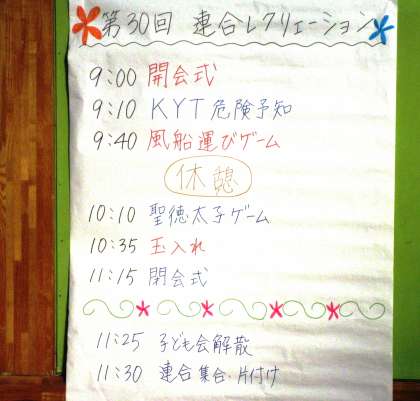 第30回 連合レクリェーション
9:00 開会式
9:10 KYT危険予知
9:40 風船運びゲーム
休憩
10:10 聖徳太子ゲーム
10:35 玉入れ
11:15 閉会式
11:25 子ども会解散
11:30 連合集合・片付け